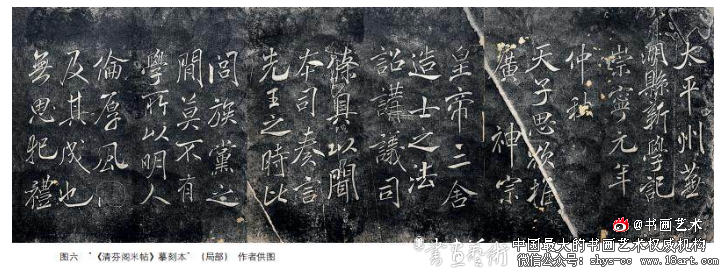 太平州蕪
湖縣新學記
崇寧元年
仲秋
天子思欲推
廣神宗
皇帝三舍
造士之法
詔講議司
條具以聞
本司奏言
先王之時比
閭族黨之
間莫不有
學所以明人
倫厚風
及其成也
無思犯禮
图六 "《清芬阁米帖》摹刻本"（局部） 作者供图
@书画艺术
書畫藝術
中国最大的书画艺术权威机构
微信公众号：shys-cc www.18art.com